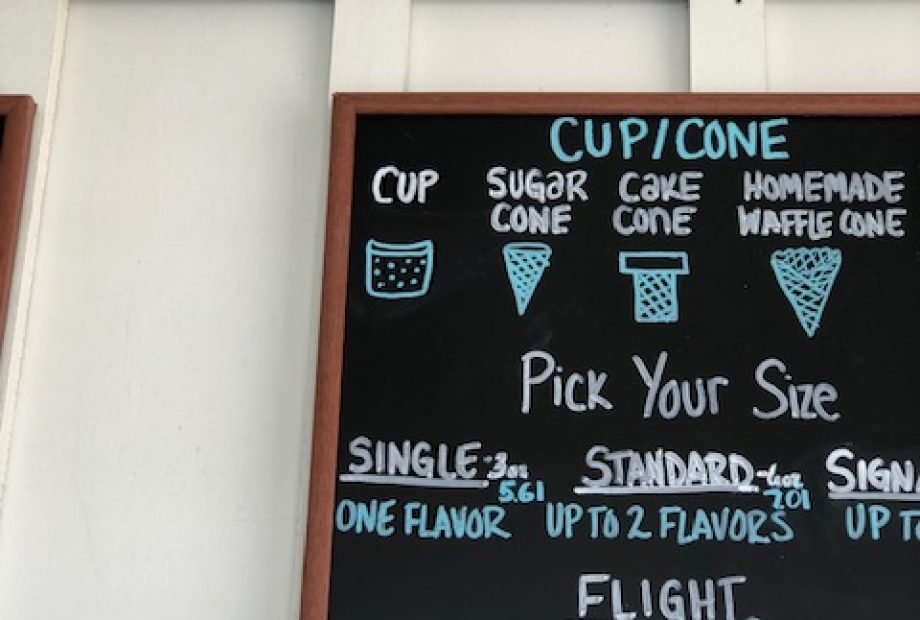 CUP/CONE
CUP SUGAR CONE CAKE CONE HOMEMADE WAFFLE CONE
Pick Your Size
SINGLE-3oz 5.61 STANDARD-6oz 7.01
ONE FLAVOR UP TO 2 FLAVORS UP
FLIGHT